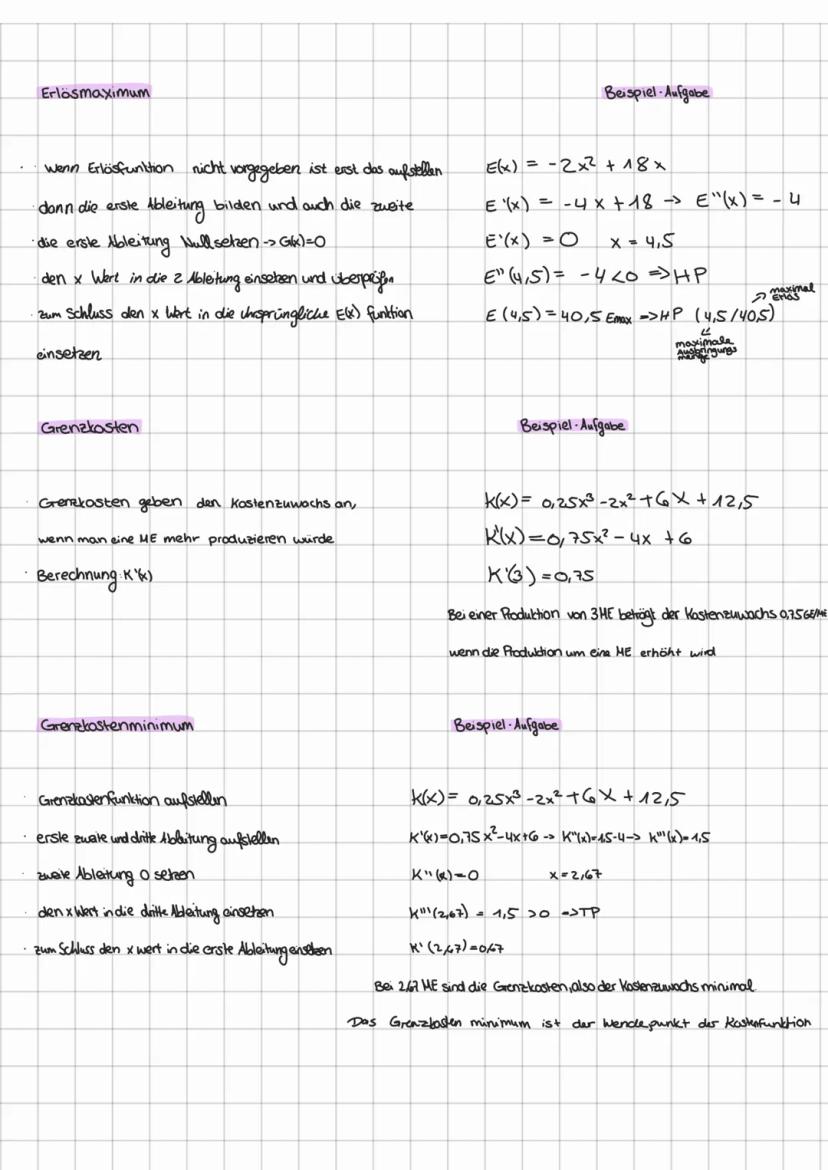 Erlösmaximum Beispiel-Aufgabe
· wenn Erlösfunktion nicht vorgegeben ist erst das aufstellen E(x) = -2x² + 18x
· dann die erste Ableitung bilden und auch die zweite E'(x) = -4x + 18 -> E''(x) = -4
· die erste Ableitung Null setzen -> G(x)=0 E'(x) = 0 x = 4,5
· den x Wert in die 2 Ableitung einsetzen und überprüfen E''(4,5) = -4 < 0 => HP
maximal
Erlös
· zum Schluss den x Wert in die ursprüngliche E(x) funktion E(4,5) = 40,5 Emax => HP (4,5/40,5)
einsetzen
maximale
Ausbringungs
menge
Grenzkosten Beispiel-Aufgabe
· Grenzkosten geben den Kostenzuwachs an, K(x) = 0,25x³ -2x² + 6x + 12,5
wenn man eine ME mehr produzieren würde K'(x) = 0,75x² - 4x + 6
· Berechnung: K'(x) K'(3) = 0,75
Bei einer Produktion von 3ME beträgt der Kostenzuwachs 0,75GE/ME
wenn die Produktion um eine ME erhöht wird
Grenzkostenminimum Beispiel-Aufgabe
· Grenzkostenfunktion aufstellen K(x) = 0,25x³ -2x² + 6x + 12,5
· erste zweite und dritte Ableitung aufstellen K'(x)=0,75x²-4x+6 -> K''(x)=1,5-4 -> K'''(x)=1,5
· zweite Ableitung 0 setzen K''(x)=0 x=2,67
· den x Wert in die dritte Ableitung einsetzen K'''(2,67) = 1,5 >0 =>TP
· zum Schluss den x wert in die erste Ableitung einsetzen K'(2,67)=0,67
Bei 2,67 ME sind die Grenzkosten, also der Kostenzuwachs minimal.
Das Grenzkosten minimum ist der Wendepunkt der Kostenfunktion